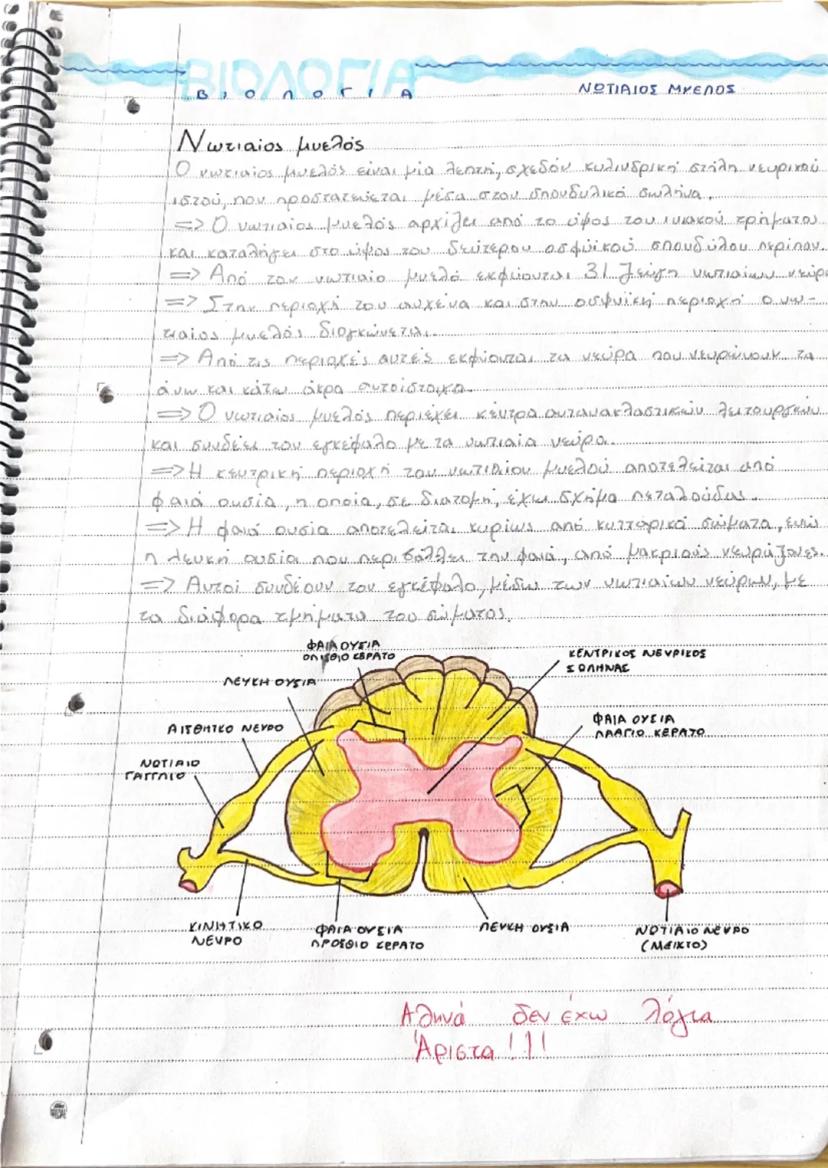 ΒΙΟΛΟΓΙΑ
ΒΙΟΛΟΓΙΑ
ΝΩΤΙΑΙΟΣ ΜΥΕΛΟΣ
Νωτιαίος μυελός
Ο νωτιαίος μυελός είναι μία λεπτή, σχεδόν κυλινδρική στήλη νευρικού
ιστού, που προστατεύεται μέσα στον σπονδυλικό σωλήνα.
=> Ο νωτιαίος μυελός αρχίζει από το ύψος του ινιακού τρήματος
και καταλήγει στο ύψος του δεύτερου οσφυϊκού σπονδύλου περίπου.
=> Από τον νωτιαίο μυελό εκφύονται 31 ζεύγη νωτιαίων νεύρ
=> Στην περιοχή του αυχένα και στην οσφυϊκή περιοχή ο νω-
τιαίος μυελός διογκώνεται.
=> Από τις περιοχές αυτές εκφύονται τα νεύρα που νευρώνουν τα
άνω και κάτω άκρα αντίστοιχα.
=> Ο νωτιαίος μυελός περιέχει κέντρα αντανακλαστικών λειτουργιών
και συνδέει τον εγκέφαλο με τα νωτιαία νεύρα.
=> Η κεντρική περιοχή του νωτιαίου μυελού αποτελείται από
φαιά ουσία, η οποία, σε διατομή, έχει σχήμα πεταλούδας.
=> Η φαιά ουσία αποτελείται κυρίως από κυτταρικά σώματα, ενώ
η λευκή ουσία που περιβάλλει την φαιά, από μακριούς νευράξονες.
=> Αυτοί συνδέουν τον εγκέφαλο, μέσω των νωτιαίων νεύρων, με
τα διάφορα τμήματα του σώματος.
ΦΑΙΑ ΟΥΣΙΑ
ΟΠΙΣΘΙΟ ΚΕΡΑΤΟ
ΚΕΝΤΡΙΚΟΣ ΝΕΥΡΙΚΟΣ
ΣΩΛΗΝΑΣ
ΛΕΥΚΗ ΟΥΣΙΑ
ΑΙΣΘΗΤΚΟ ΝΕΥΡΟ
ΦΑΙΑ ΟΥΣΙΑ
ΠΛΑΓΙΟ ΚΕΡΑΤΟ
ΝΟΤΙΑΙΟ
ΓΑΓΓΛΙΟ
ΚΙΝΗΤΙΚΟ
ΝΕΥΡΟ
ΦΑΙΑ ΟΥΣΙΑ
ΠΡΟΣΘΙΟ ΚΕΡΑΤΟ
ΛΕΥΚΗ ΟΥΣΙΑ
ΝΟΤΙΑΙΟ ΝΕΥΡΟ
(ΜΕΙΚΤΟ)
Αθηνά δεν έχω λόγια
Άριστα!!!